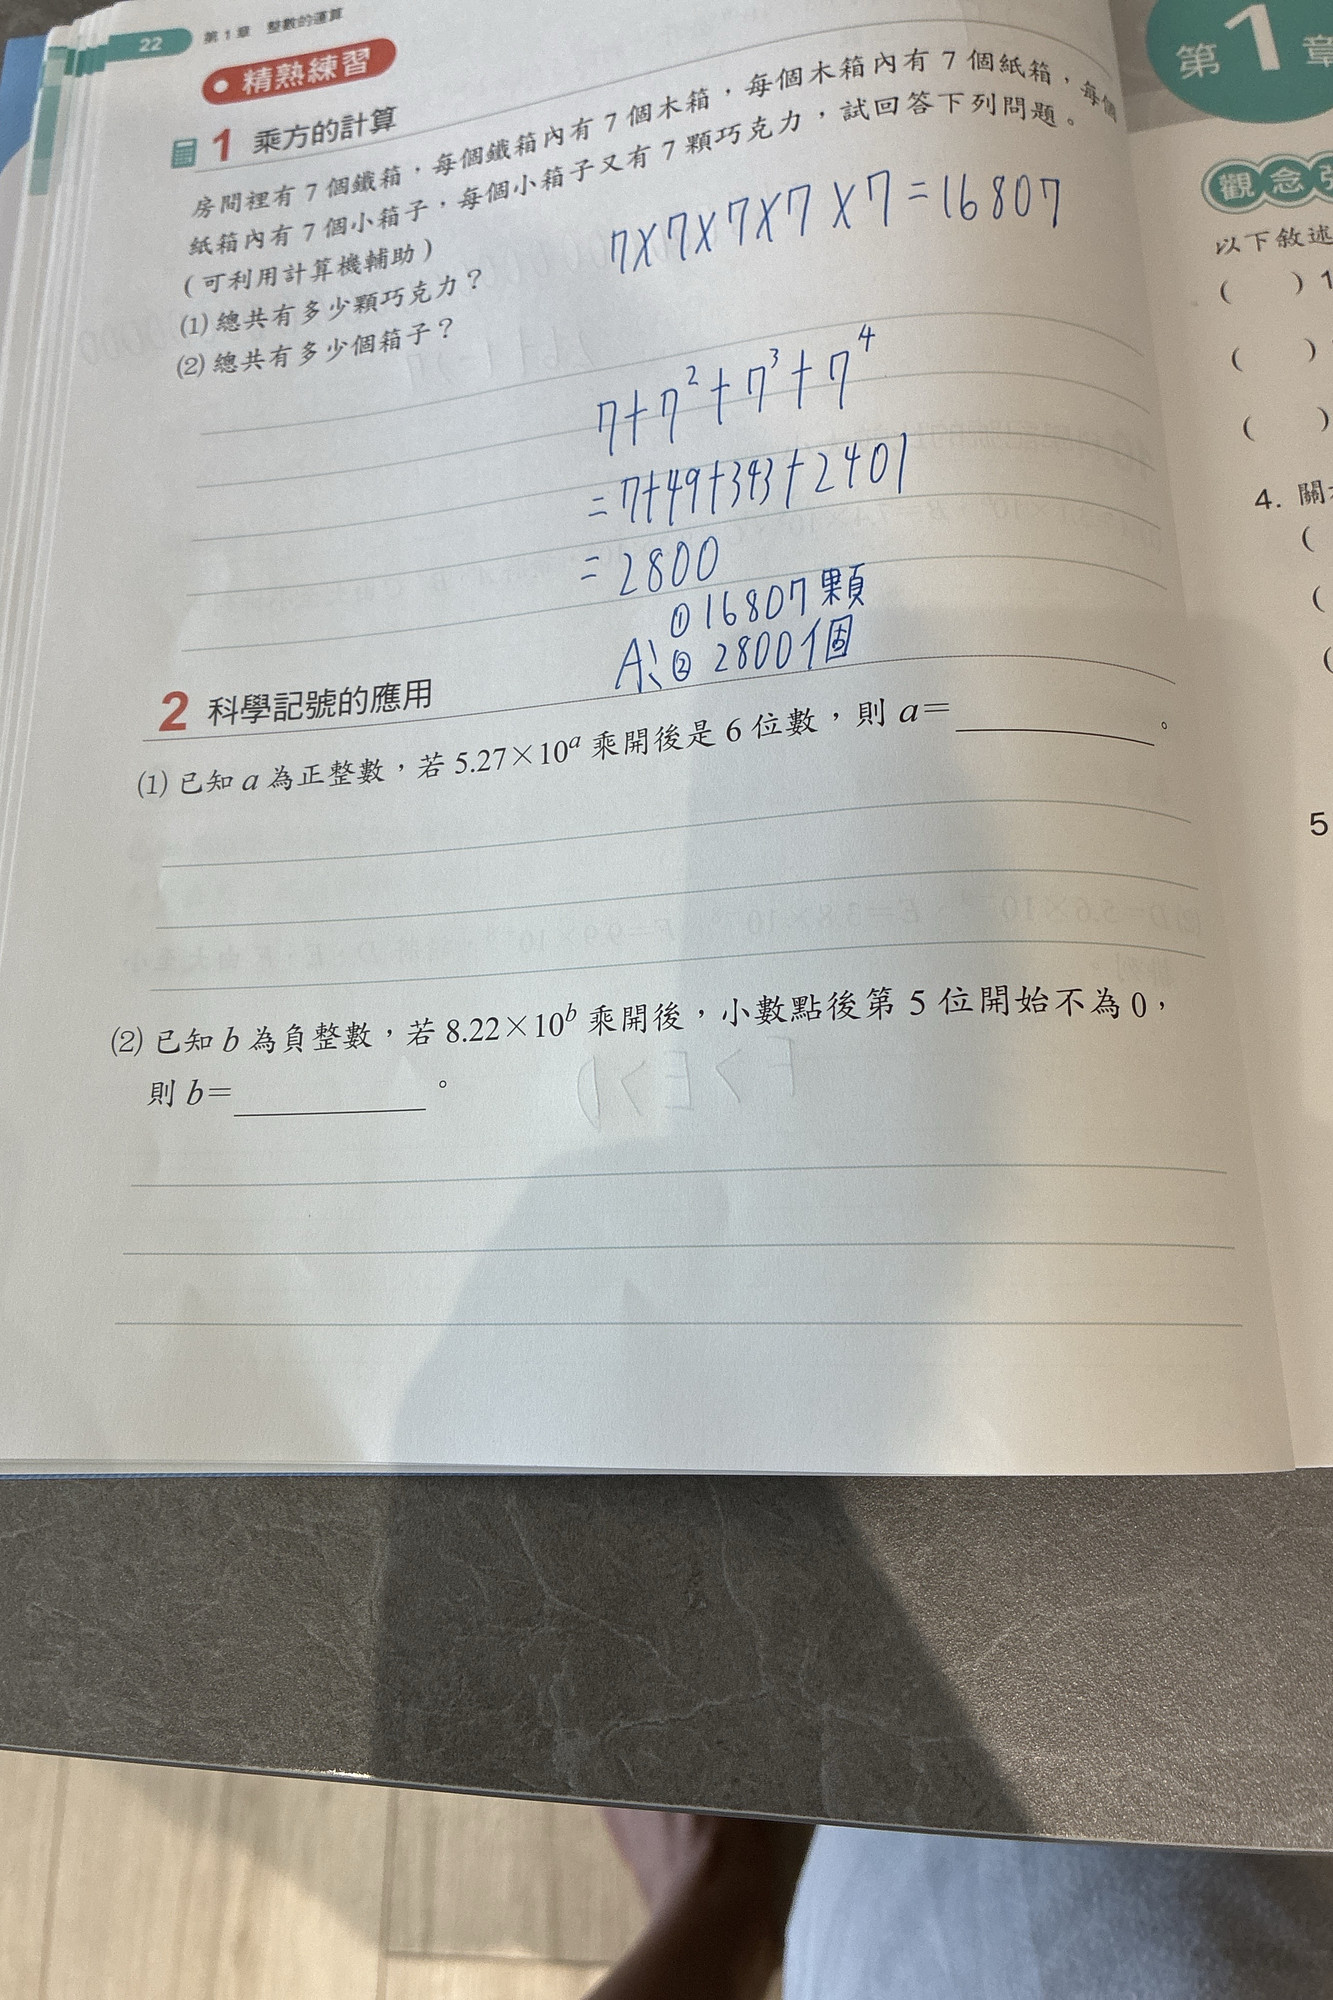 22 第1章 整數的運算
精熟練習
1 乘方的計算
房間裡有 7 個鐵箱，每個鐵箱內有 7 個木箱，每個木箱內有 7 個紙箱，每個
紙箱內有 7 個小箱子，每個小箱子又有 7 顆巧克力，試回答下列問題。
(可利用計算機輔助)
7×7×7×7×7=16807
(1) 總共有多少顆巧克力？
(2) 總共有多少個箱子？
7+7²+7³+7⁴
=7+49+343+2401
=2800
① 16807顆
A: ② 2800個
2 科學記號的應用
(1) 已知 a 為正整數，若 5.27×10ᵃ 乘開後是 6 位數，則 a=＿＿＿＿。
(2) 已知 b 為負整數，若 8.22×10ᵇ 乘開後，小數點後第 5 位開始不為 0，
則 b=＿＿＿＿。
第1章
觀念
以下敘述
( ) 1
( )
( )
4. 關
(
(
(
5